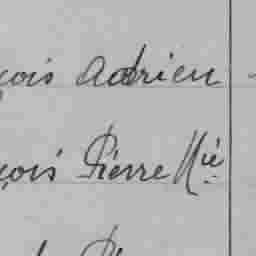 çois Adrien
çois Pierre Mie